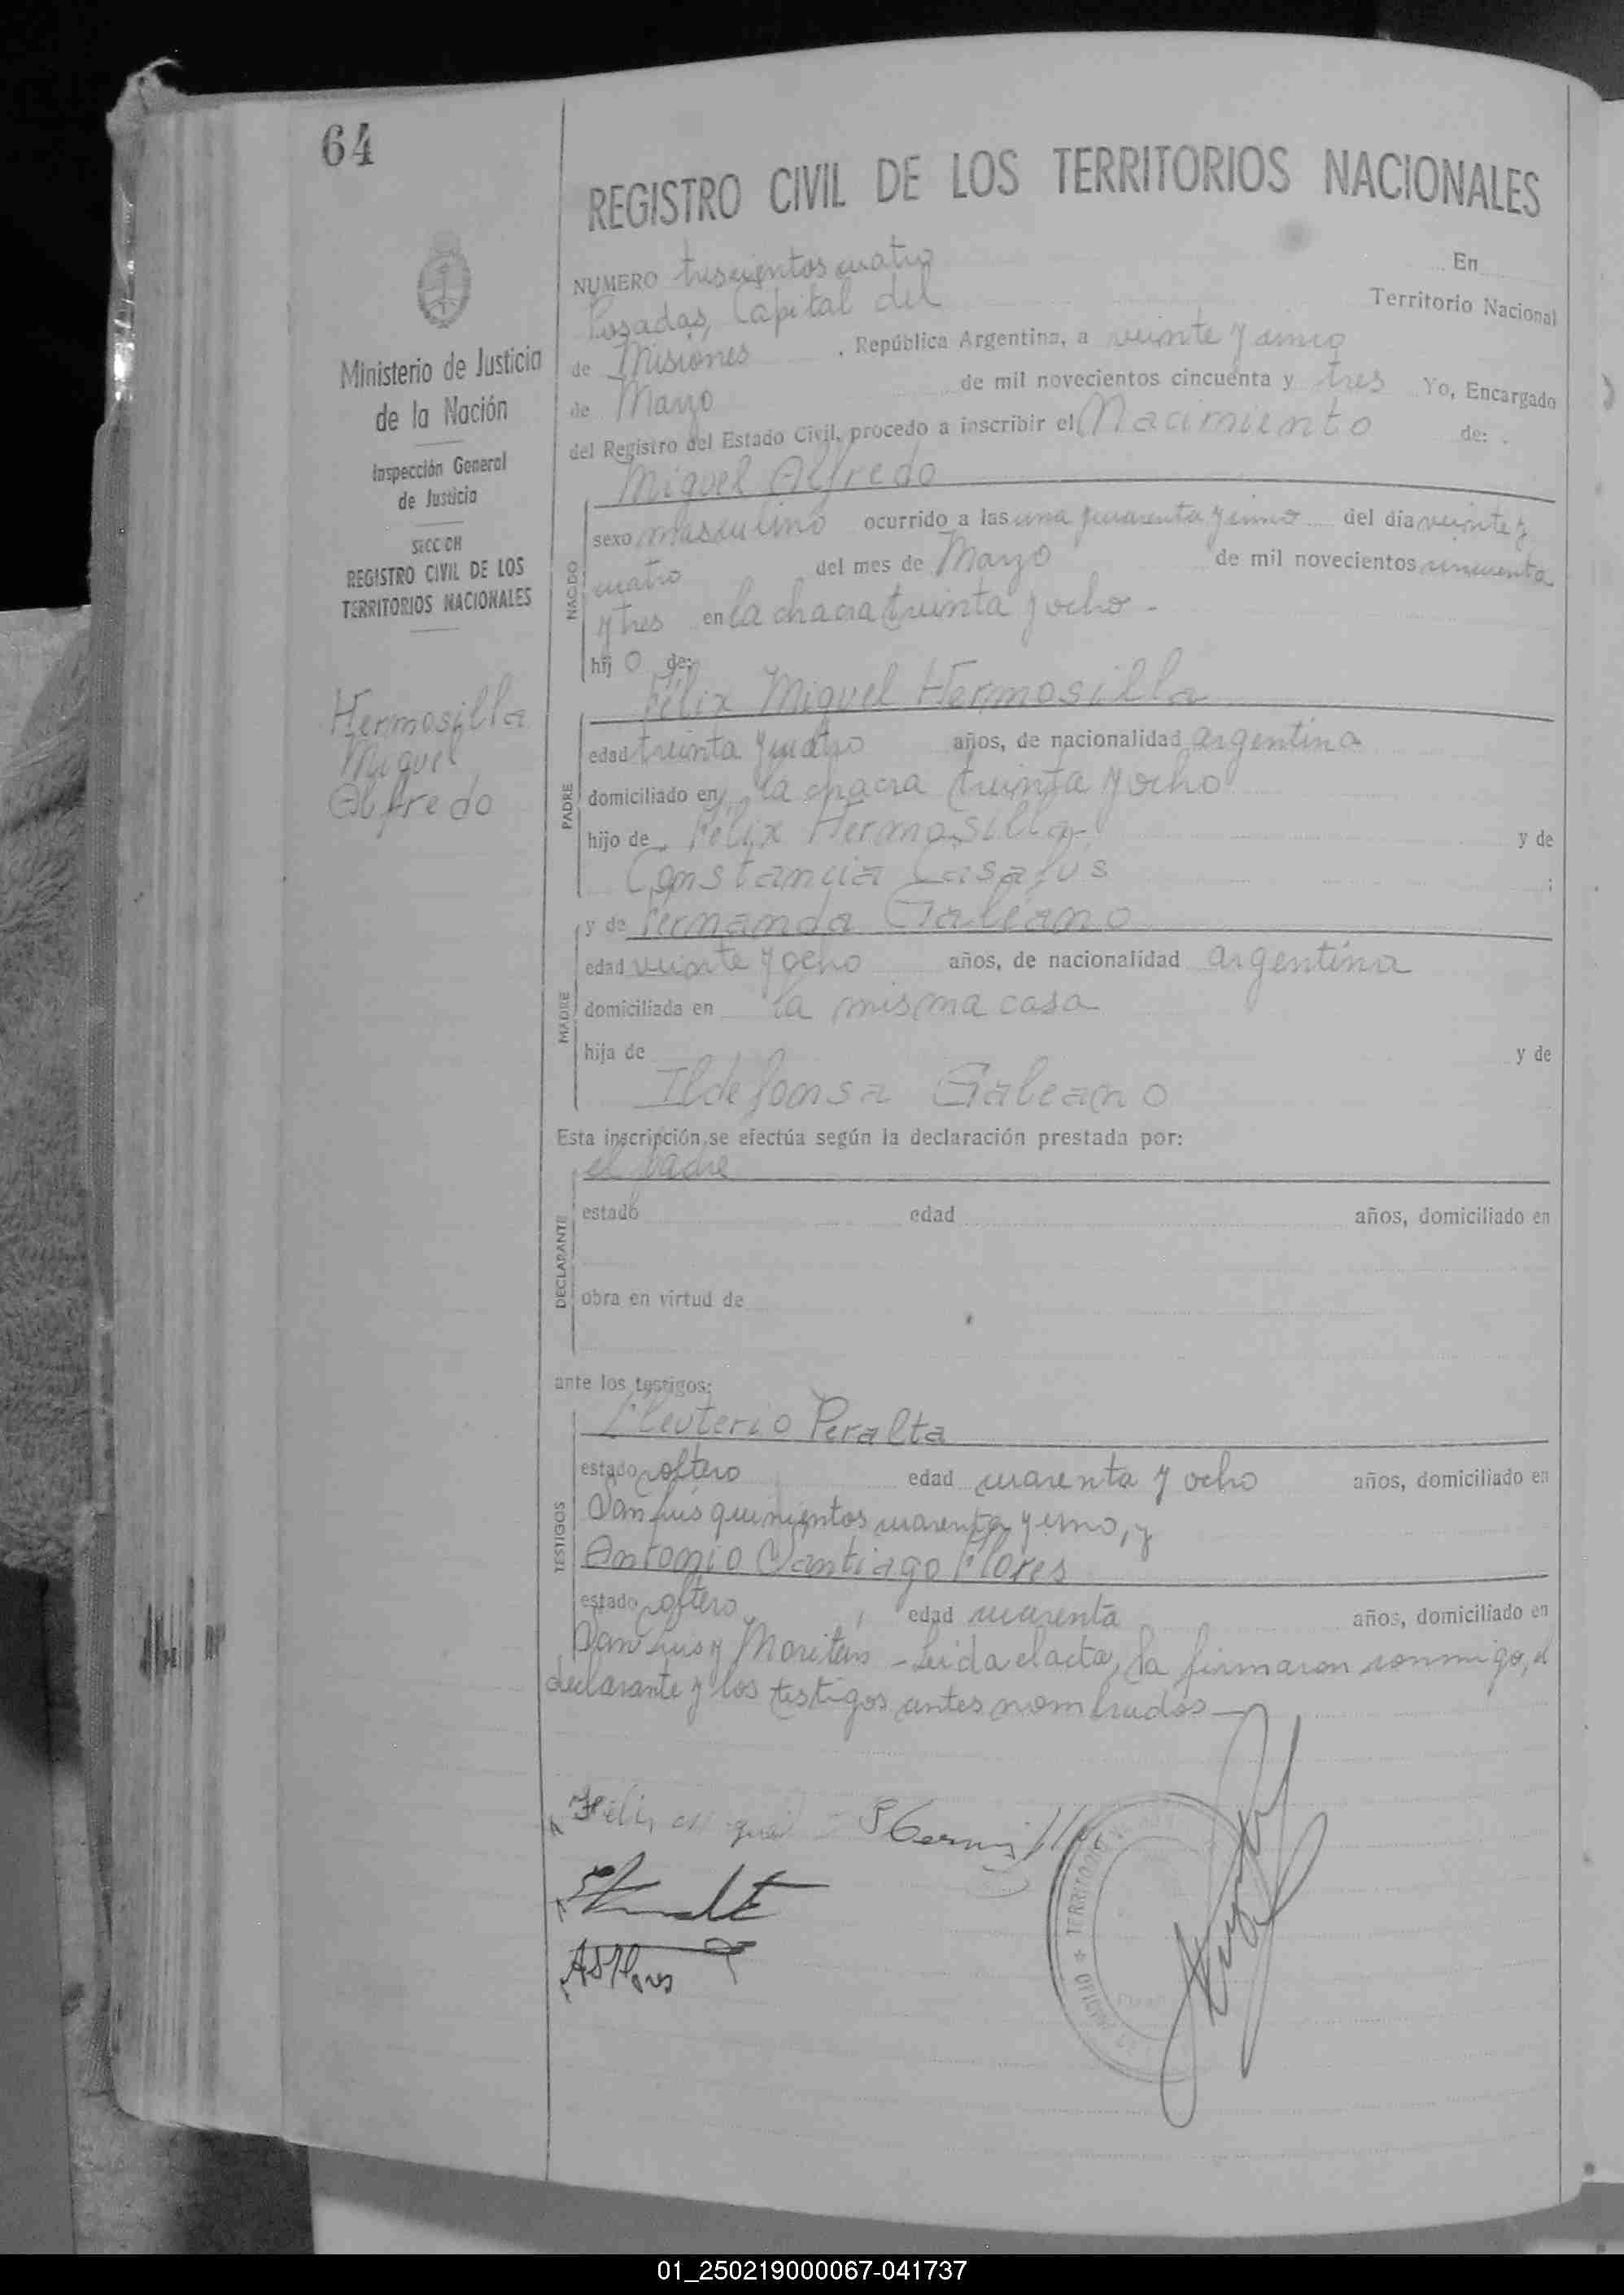 64
REGISTRO CIVIL DE LOS TERRITORIOS NACIONALES
Ministerio de Justicia
de la Nación
Inspección General
de Justicia
SECCION
REGISTRO CIVIL DE LOS
TERRITORIOS NACIONALES
Hermosilla
Miguel
Alfredo
NUMERO trescientos cuatro En
Posadas, Capital del Territorio Nacional
de Misiones , República Argentina, a veinte y cinco
de Marzo de mil novecientos cincuenta y tres Yo, Encargado
del Registro del Estado Civil, procedo a inscribir el Nacimiento de:
Miguel Alfredo
NACIDO
sexo masculino ocurrido a las una y cuarenta y cinco del día veinte y
cuatro del mes de Marzo de mil novecientos cincuenta
y tres en la chacra treinta y ocho -
hij o de:
Félix Miguel Hermosilla
PADRE
edad treinta y cuatro años, de nacionalidad argentina
domiciliado en la chacra treinta y ocho
hijo de Félix Hermosilla y de
Constancia Casafus ;
y de Fernanda Galeano
MADRE
edad veinte y ocho años, de nacionalidad argentina
domiciliada en la misma casa
hija de y de
Ildefonsa Galeano
Esta inscripción se efectúa según la declaración prestada por:
el padre
DECLARANTE
estado edad años, domiciliado en
obra en virtud de
ante los testigos:
Eleuterio Peralta
TESTIGOS
estado soltero edad cuarenta y ocho años, domiciliado en
San Luis quinientos cuarenta y cinco, y
Antonio Santiago Flores
estado soltero edad cuarenta años, domiciliado en
San Luis y Moritán - Leida el acta, la firmaron conmigo, el
declarante y los testigos antes nombrados -
Félix Miguel Hermosilla
ASFlores
TERRITORIOS
JUSTICIA
01_250219000067-041737